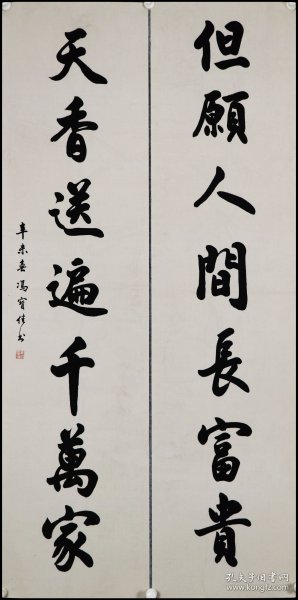 但願人間長富貴
天香送遍千萬家
辛未春馮寶佳書
孔夫子旧书网
www.kongfz.com